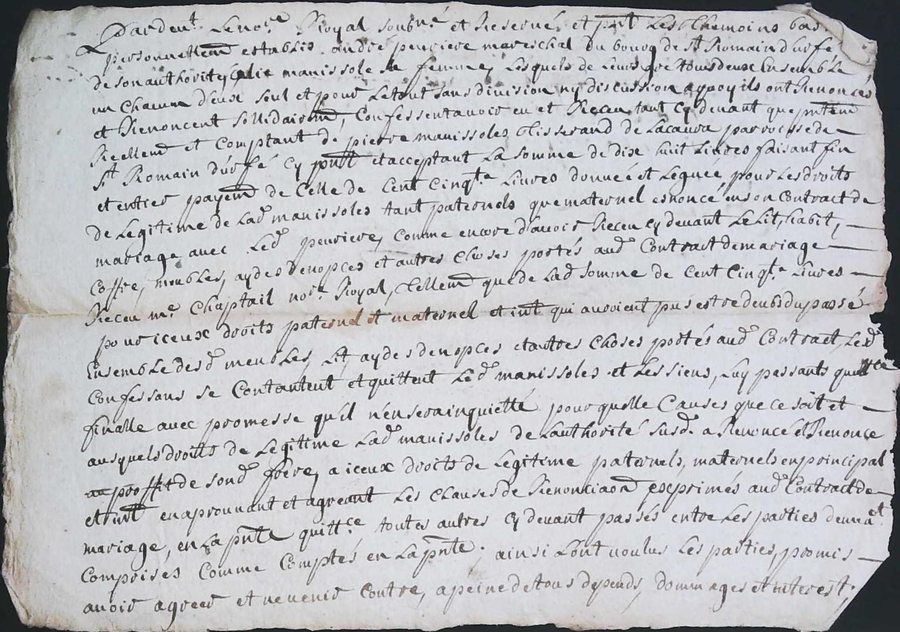 Pardev^t Le no^re Royal soubné et Reservé, et pnt Les thesmoins bas
personnellem^t establis andré perriere mareschal du bourg de S^t Romain d'urfé
de son authorité, manissole sa femme, Lesquels de Leurs gré tous deux Ensemble
un chacun d'eux seul et pour Le tout sans division ny discussion a quoy ils ont Renoncés
et Renoncent sollidairem^t, Confessent avoir eu et Receu tant cy devant que pntem^t
Reellem^t et Comptant de pierre manissoles tisserand de Lacaura parroisse de
S^t Romain d'urfé cy pnt et acceptant La somme de dix huit Livres faisant fin
et entier payem^t de Celle de Cent Cinq^te Livres donnée et Leguée pour Les droits
de Legitime de Lad^e manissoles tant paternels que maternel enoncé en son Contract de
mariage avec Led^t perriere, Comme encore d'avoir Receu cy devant Le Lit, habit,
Coffre, meubles, aydes de nopces et autres choses portés aud^t Contract de mariage
Receu m^e Chaptail no^re Royal, tellem^t que de Lad^e somme de Cent Cinq^te Livres
pour iceux droits paternel et maternel et int qui auroient pus estre deubs du passé
Ensemble desd^s meubles, Lit, aydes de nopces et autres choses portés aud^t Contract, Lesd^s
Confessans se Contentent et quittent Led^t manissoles et Les siens, Luy passants quitt^ce
finalle avec promesse qu'il n'en sera inquietté pour quelle Causes que ce soit et
ausquels droits de Legitime Lad^e manissoles de L'authorité susd^e a Renoncé et Renonce
au proffit de sond^t frere, a iceux droits de Legitime paternels, maternels en principal
et int en aprouvant et agreant Les Clauses de Renonciaon exprimés aud^t Contract de
mariage, en La pnte quitt^ce toutes autres cy devant passés entre Les parties demeu^nt
Comprises Comme Comptés en La pnte. ainsi L'ont voulus Les parties, promis
avoir agreer et ne venir Contre, a peine de tous depends, dommages et interest.